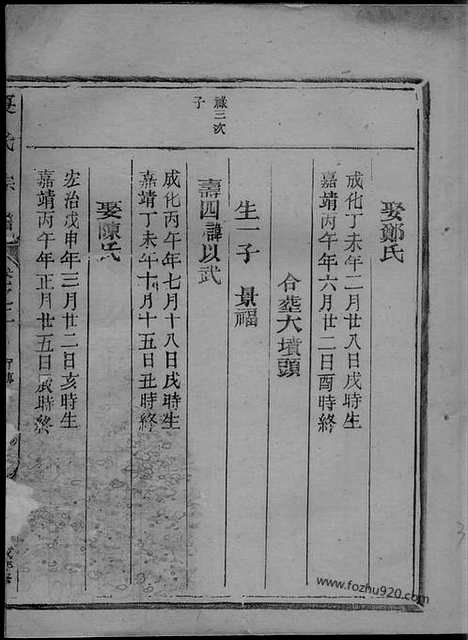 娶鄭氏
成化丁未年二月廿八日戌時生
嘉靖丙午年六月廿二日酉時終
合塟大墳頭
生一子 景福
祿三次
子
壽四諱以武
成化丙午年七月十八日戌時生
嘉靖丁未年十月十五日丑時終
娶陳氏
宏治戊申年三月廿二日亥時生
嘉靖丙午年正月廿五日辰時終
氏宗譜
www.fozhu920.com